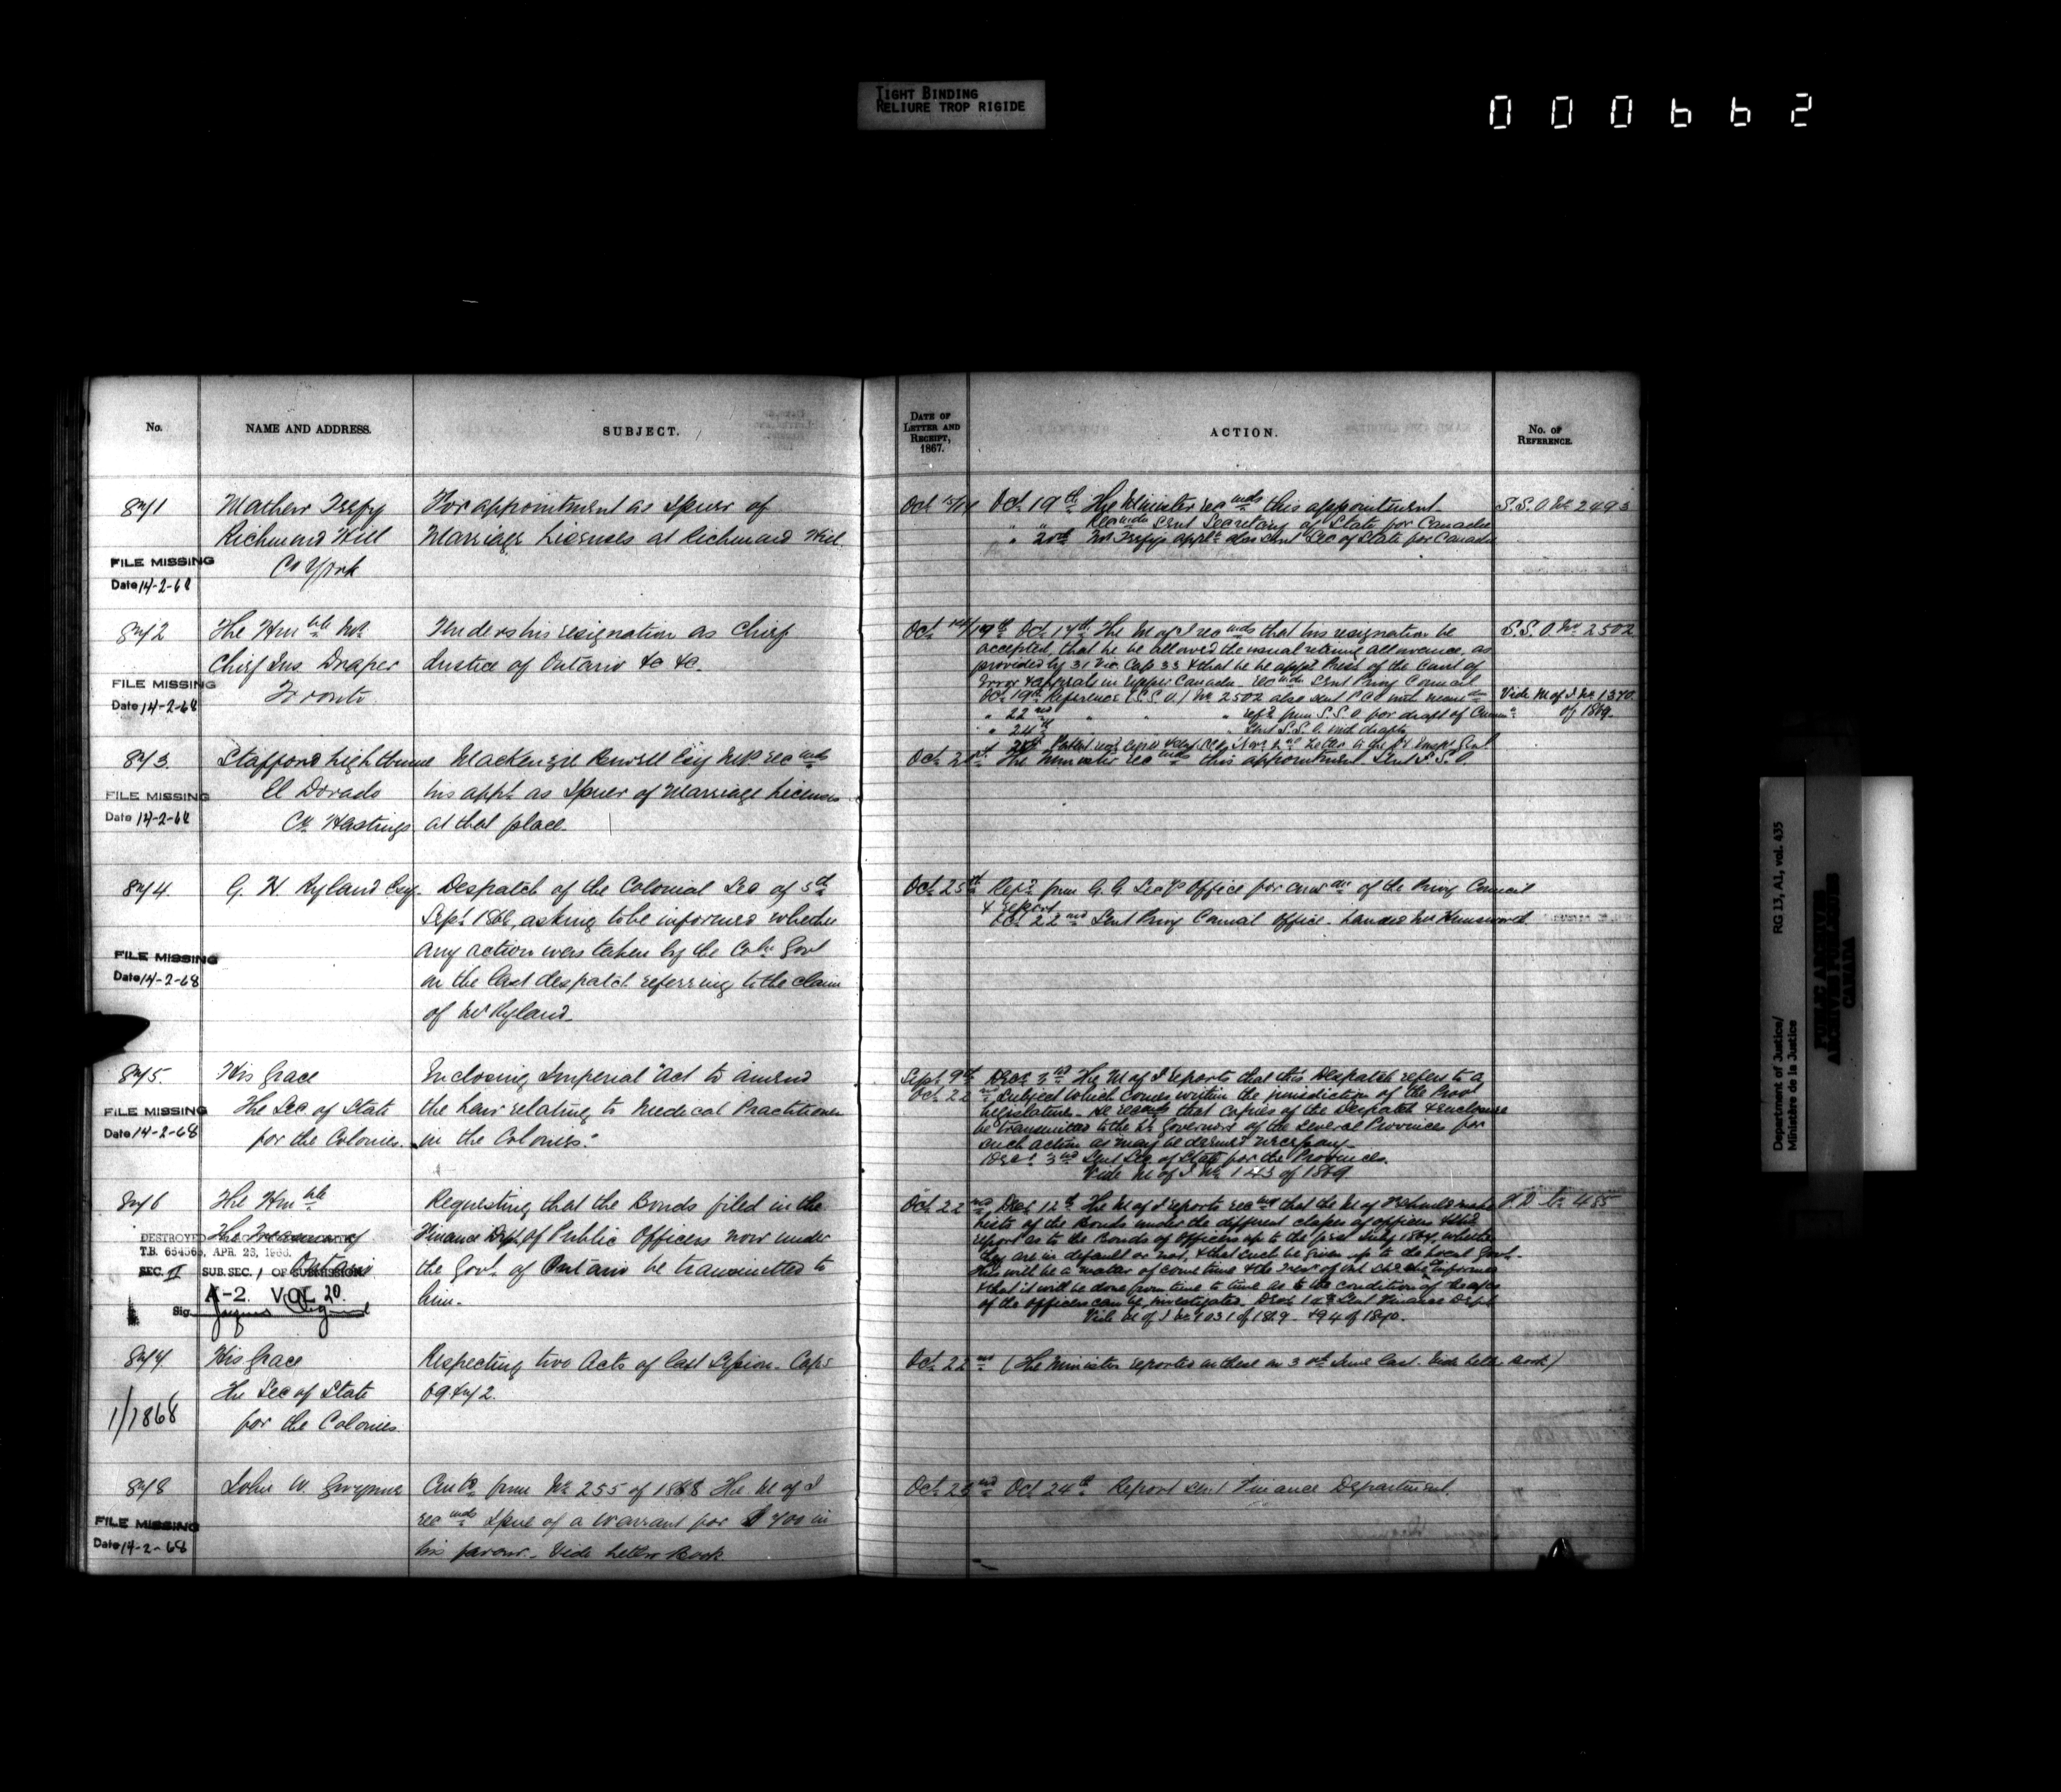 TIGHT BINDING
RELIURE TROP RIGIDE
000662
No.
NAME AND ADDRESS.
SUBJECT.
DATE OF LETTER AND RECEIPT, 1867.
ACTION.
No. OF REFERENCE.
871 Mathew Teefy For appointment as Issuer of Oct 15/17 Oct 19th The Minister recmds this appointment S.S.O No 2493
Richmond Hill Marriage Licenses at Richmond Hill. " " Recmds sent Secretary of State for Canada
" 20th Mr Teefys applt also sent Sec of State for Canada
FILE MISSING Co York
Date 14-2-68
872 The Honble Mr Tenders his resignation as Chief Oct 17th The M of J recmds that his resignation be S.S.O. No 2502
Chief Jus. Draper Justice of Ontario &c &c. accepted, that he be allowed the usual retiring allowance, as
provided by 31 Vic Cap 33 & that he be appd Prest of the Court of
FILE MISSING Toronto Error & appeal in Upper Canada. Recmds sent Privy Council
Date 14-2-68 Oct 19th Reference (S.S.O.) No 2502 also sent P.C.O. with Vide M of J No 1370
" 22nd " " " refd from S.S.O for draft of of 1869.
" 24th " Sent S.S.O. with draft
873. Stafford Lightburne Mackenzie Bowell Esq M.P. recmds Oct 21st The Minister recmds this appointment Sent S.S.O
FILE MISSING El Dorado his appt as Issuer of Marriage Licenses
Date 14-2-68 Co Hastings at that place.
874. G. H Ryland Esq. Despatch of the Colonial Sec of 5th Oct 25th Refd from G. G. Secys Office for of the Privy Council
Sept 1868, asking to be informed whether & report
Oct 22nd Sent Privy Council Office. handed Mr Himsworth
any action was taken by the Govt
FILE MISSING
Date 14-2-68 on the last despatch referring to the claim
of Mr Ryland.
875. His Grace Inclosing Imperial "Act to amend Sept 9th Decr 3rd The M of J reports that this Despatch refers to a
Oct 22nd subject which comes within the jurisdiction of the Prov
FILE MISSING The Sec of State the Law relating to Medical Practitioners Legislatures. He recmds that copies of the Despatch & Enclosure
Date 14-2-68 for the Colonies. in the Colonies." be transmitted to the Lt Governors of the several Provinces for
such action as may be deemed necessary
Decr 3rd Sent Sec of State for the Provinces.
Vide M of J No 143 of 1869
876 The Honble Requesting that the Bonds filed in the Oct 22nd Decr 12th The M of J reports recmg that the M of F should make F.D. 485
The Treasurer of Finance Dept of Public Officers now under lists of the Bonds under the different classes of officers &
Ontario the Govt of Ontario be transmitted to report as to the Bonds of officers up to the first July 1867, whether
him. they are in default or not, & that such be given up to the Local Govt.
This will be a matter of some time & the Treasr of Ont should be informed
& that it will be done from time to time as to the condition of the affrs
of the officers can be investigated. Decr Sent Finance Dept
Vide M of J No 1031 of 1869 & 94 of 1870.
DESTROYED
T.B. 654563, APR. 23, 1966.
SEC. II SUB. SEC. 1 OF SUBMISSION
A-2. VOL 20.
Sig.
877 His Grace Respecting two Acts of last Session. Caps Oct 22nd (The Minister reported on these on 3rd June last. Vide Letter Book)
The Sec of State 69 & 72.
1/1868 for the Colonies
878 John W. Gwynne from No 255 of 1868 The M of J Oct 23rd Oct 24th Report sent Finance Department.
FILE MISSING recmds Issue of a Warrant for $700 in
Date 14-2-68 his favour. Vide Letter Book
Department of Justice/
Ministère de la Justice
RG 13, A1, vol. 435
PUBLIC ARCHIVES
ARCHIVES PUBLIQUES
CANADA